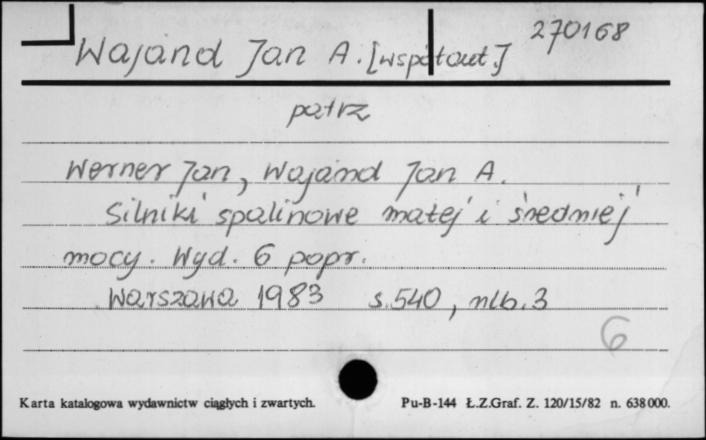 270168
Wajand Jan A. [współaut.]
patrz
Werner Jan, Wajand Jan A.
Silniki spalinowe małej i średniej
mocy. Wyd. 6 popr.
Warszawa 1983 s. 540, nlb. 3
6
Karta katalogowa wydawnictw ciągłych i zwartych. Pu-B-144 Ł.Z.Graf. Z. 120/15/82 n. 638000.